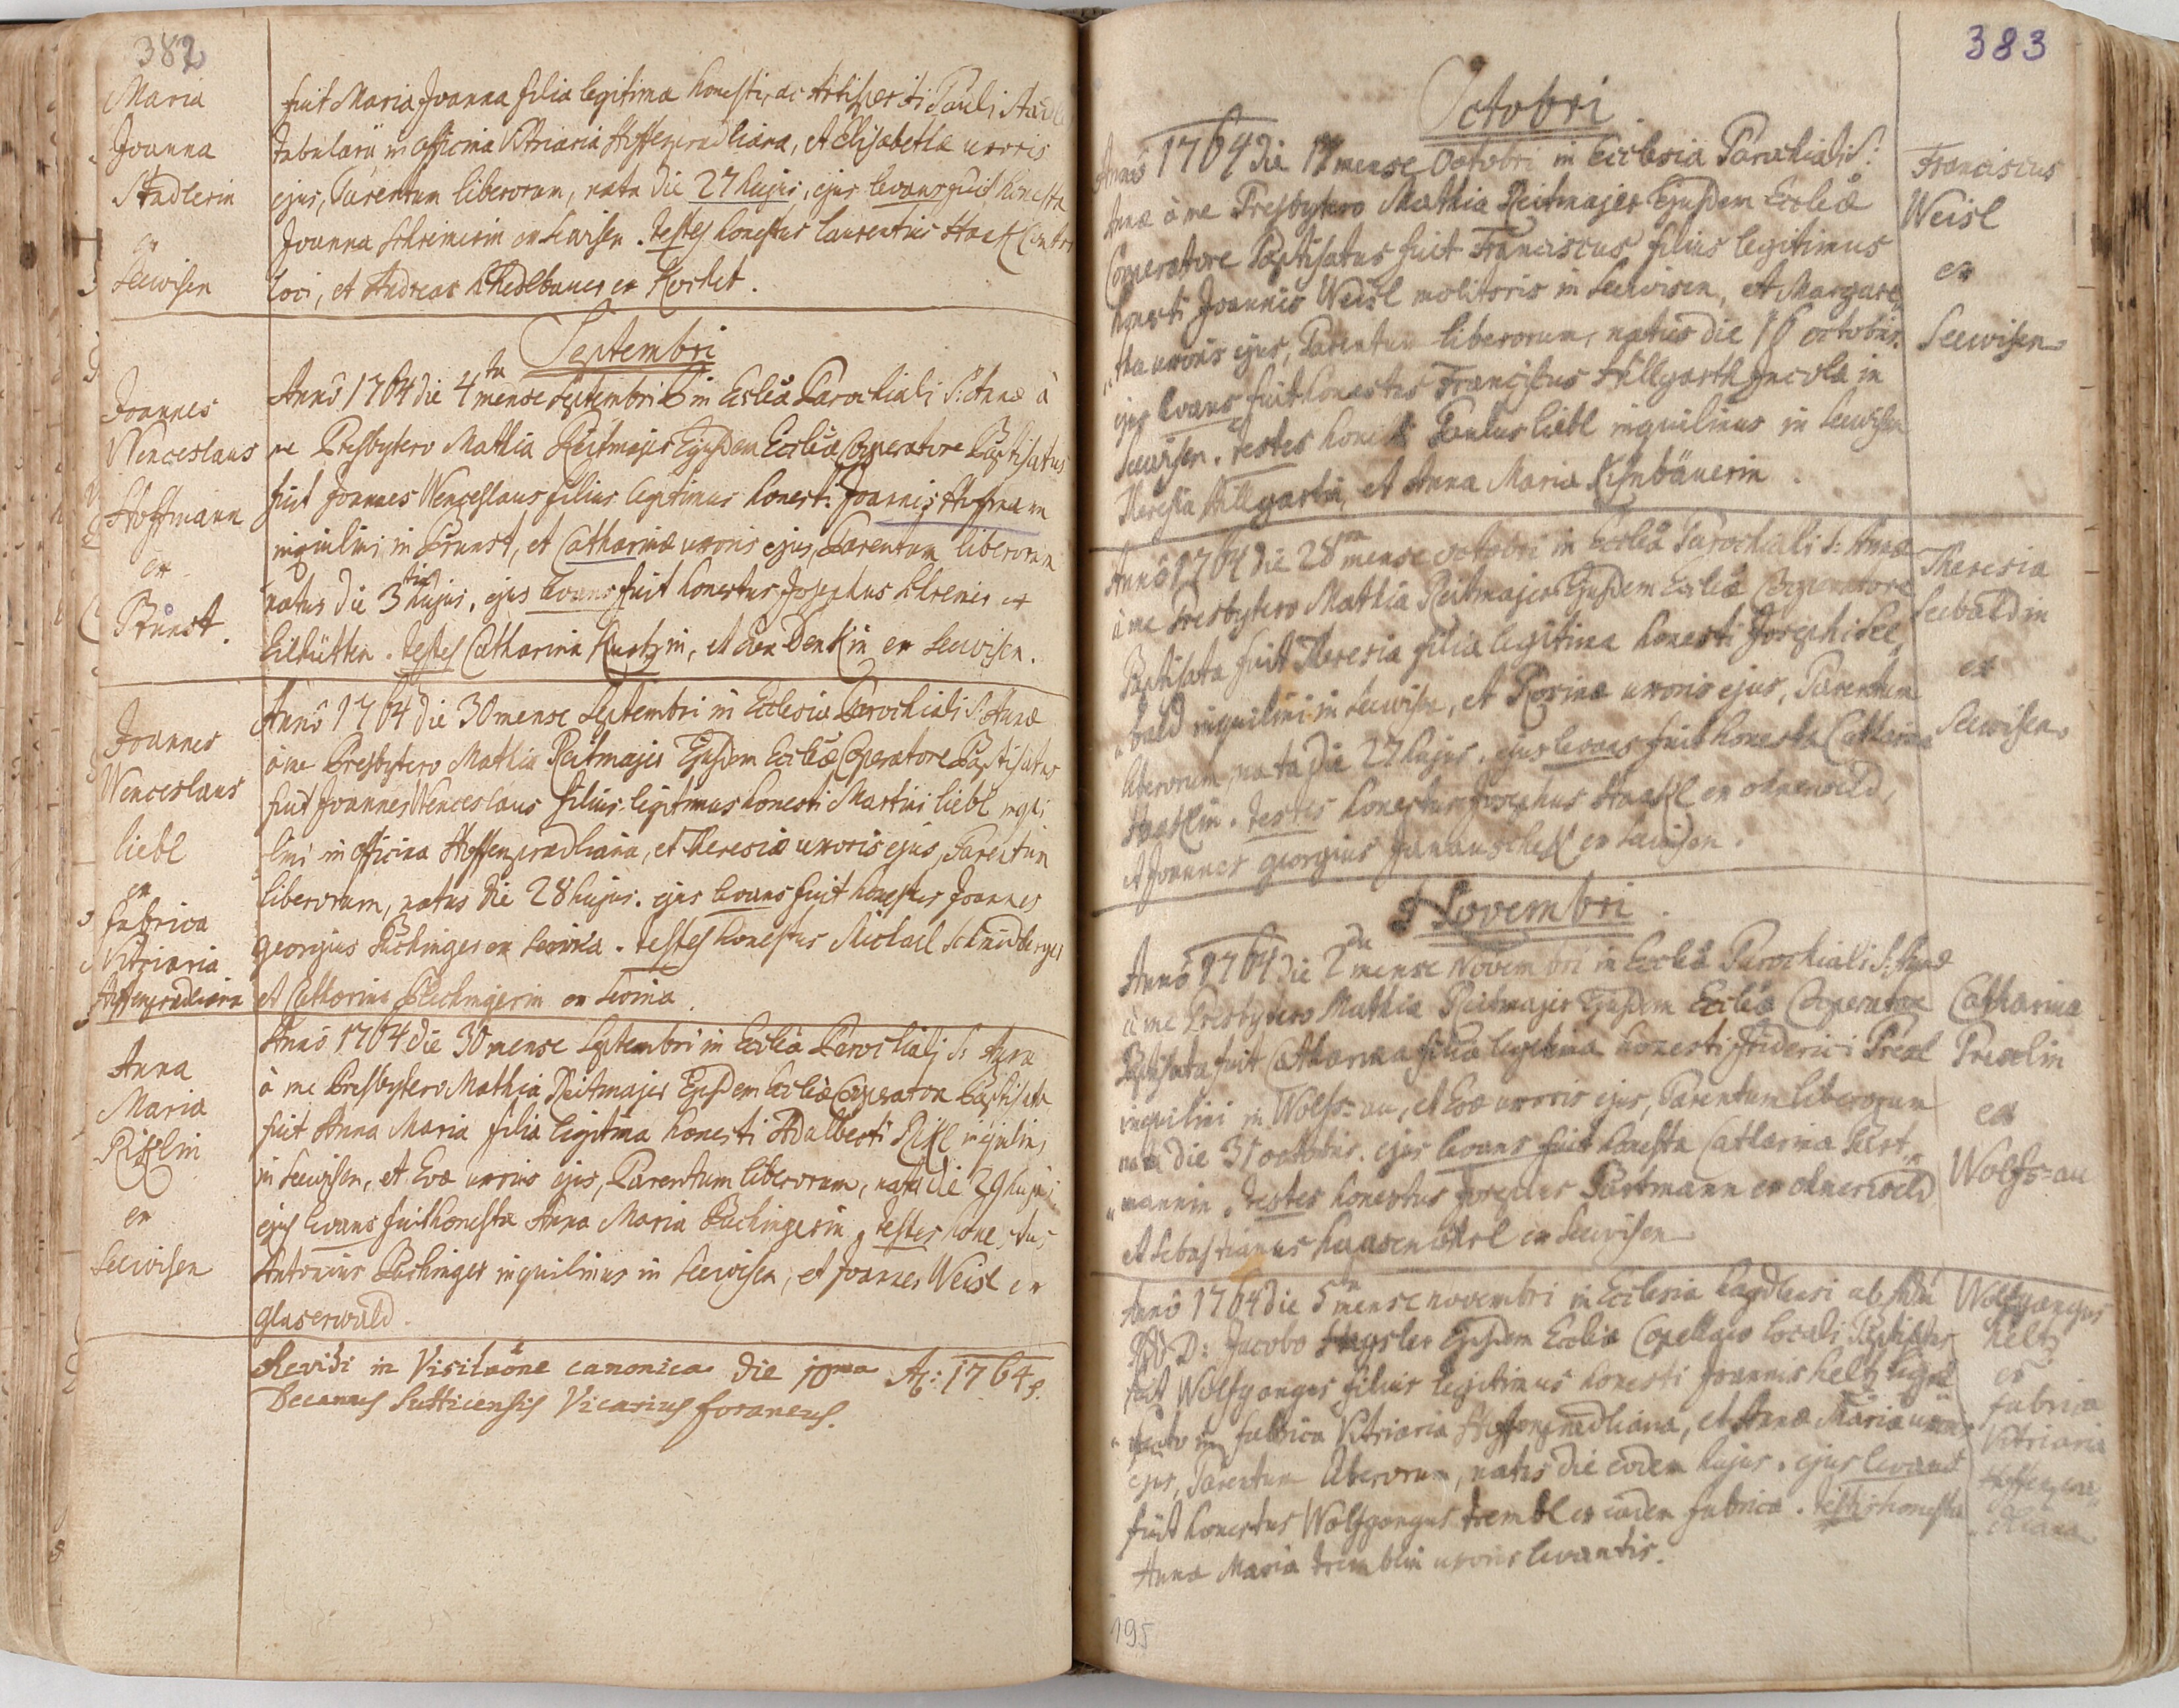 382
Maria
Joanna
Stadlerin
ex
Seewisen
fuit Maria Joanna filia legitima honesti, ac Artisperiti Pauli
Tabularii in officina Vitriaria Hoffenpradliana, et Elisabethæ uxoris
ejus, Parentum liberorum, nata die 27 hujus, ejus levans fuit honesta
Joanna Schreinerin ex Seewisen. testes honestus Laurentius
loci, et Andreas ex Kochet.
Septembri
Joannes
Wenceslaus
Hoffmann
ex
Brunst.
Anno 1764 die 4ta mense Septembri in Ecclia Parochiali S: Annæ à
me Presbytero Mathia Reitmajer Ejusdem Eccliæ Cooperatore Baptisatus
fuit Joannes Wenceslaus filius legitimus honesti Joannis Hoffmann
inquilini in Brunst, et Catharinæ uxoris ejus, Parentum liberorum
natus die 3tia hujus, ejus levans fuit honestus Josephus Schreiner ex
Eilhütten. testes Catharina Kurtzin, et Eva Denkin ex Seewisen.
Joannes
Wenceslaus
liebl
ex
fabrica
Vitriaria
Hoffenpradliana
Anno 1764 die 30 mense Septembri in Ecclesia Parochiali S: Annæ
à me Presbytero Mathia Reitmajer Ejusdem Eccliæ Cooperatore Baptisatus
fuit Joannes Wenceslaus filius legitimus honesti Martini liebl inqui
lini in officina Hoffenpradliana, et Theresiæ uxoris ejus, Parentum
liberorum, natus die 28 hujus. ejus levans fuit honestus Joannes
georgius Puchinger ex Seewisen. testes honestus Michael Schmidberger
et Catharina Puchingerin ex
Anna
Maria
Rixlin
ex
Seewisen
Anno 1764 die 30 mense Septembri in Ecclia Parochiali S: Annæ
à me Presbytero Mathia Reitmajer Ejusdem Eccliæ Cooperatore Baptisata
fuit Anna Maria filia legitima honesti Adalberti Rixl inquilini
in Seewisen, et Evæ uxoris ejus, Parentum liberorum, nata die 29 hujus
ejus levans fuit honesta Anna Maria Puchingerin, testes honestus
Antonius Puchinger inquilinus in Seewisen, et Joannes Weisl ex
glaserwald.
Revidi in Visitaõne canonica die 10ma A: 1764.
Decanus Sutticensis Vicarius foraneus.
383
Octobri
Anno 1764 die 17 mense Octobri in Ecclesia Parochiali S:
Annæ à me Presbytero Mathia Reitmajer Ejusdem Eccliæ
Cooperatore Baptisatus fuit Franciscus filius legitimus
honesti Joannis Weisl molitoris in Seewisen, et Margare
tha uxoris ejus, Parentum liberorum, natus die 16 octobris.
ejus levans fuit honestus Franciscus Hillgarth Incola in
Seewisen. testes honestus Paulus liebl inquilinus in Seewisen
Theresia Hillgartin, et Anna Maria
Franciscus
Weisl
ex
Seewisen
Anno 1764 die 28 mense octobri in Ecclia Parochiali S: Annæ
à me Presbytero Mathia Reitmajer Ejusdem Eccliæ Cooperatore
Baptisata fuit Theresia filia legitima honesti Josephi See
bald inquilini in Seewisen, et Rosinæ uxoris ejus, Parentum
liberorum, nata die 27 hujus. ejus levans fuit honesta Catharina
Haaklin. testes honestus Josephus Haakl ex
et Joannes georgius ex Seewisen.
Theresia
Seebaldin
ex
Seewisen
Novembri
Anno 1764 die 2da mense Novembri in Ecclia Parochiali S: Annæ
à me Presbytero Mathia Reitmajer Ejusdem Eccliæ Cooperatore
Baptisata fuit Catharina filia legitima honesti Friderici Prexl
inquilini in Wolfs=au, et Evæ uxoris ejus, Parentum liberorum
nata die 31 octobris. ejus levans fuit honesta Catharina Part
mannin. testes honestus Josephus Partmann ex
et Sebastianus ex Seewisen
Catharina
Prexlin
ex
Wolfs=au
Anno 1764 die 5ta mense novembri in Ecclesia ab
D: Jacobo Ejusdem Eccliæ Capellano locali Baptisatus
fuit Wolfgangus filius legitimus honesti Joannis heltz
in fabrica Vitriaria Hoffenpradliana, et Annæ Mariæ uxoris
ejus, Parentum liberorum, natus die eodem hujus. ejus levans
fuit honestus Wolfgangus trembl ex eadem fabrica. testis honesta
Anna Maria tremblin uxoris levantis.
Wolfgangus
heltz
ex
fabrica
Vitriaria
Hoffenpra
dliana
195